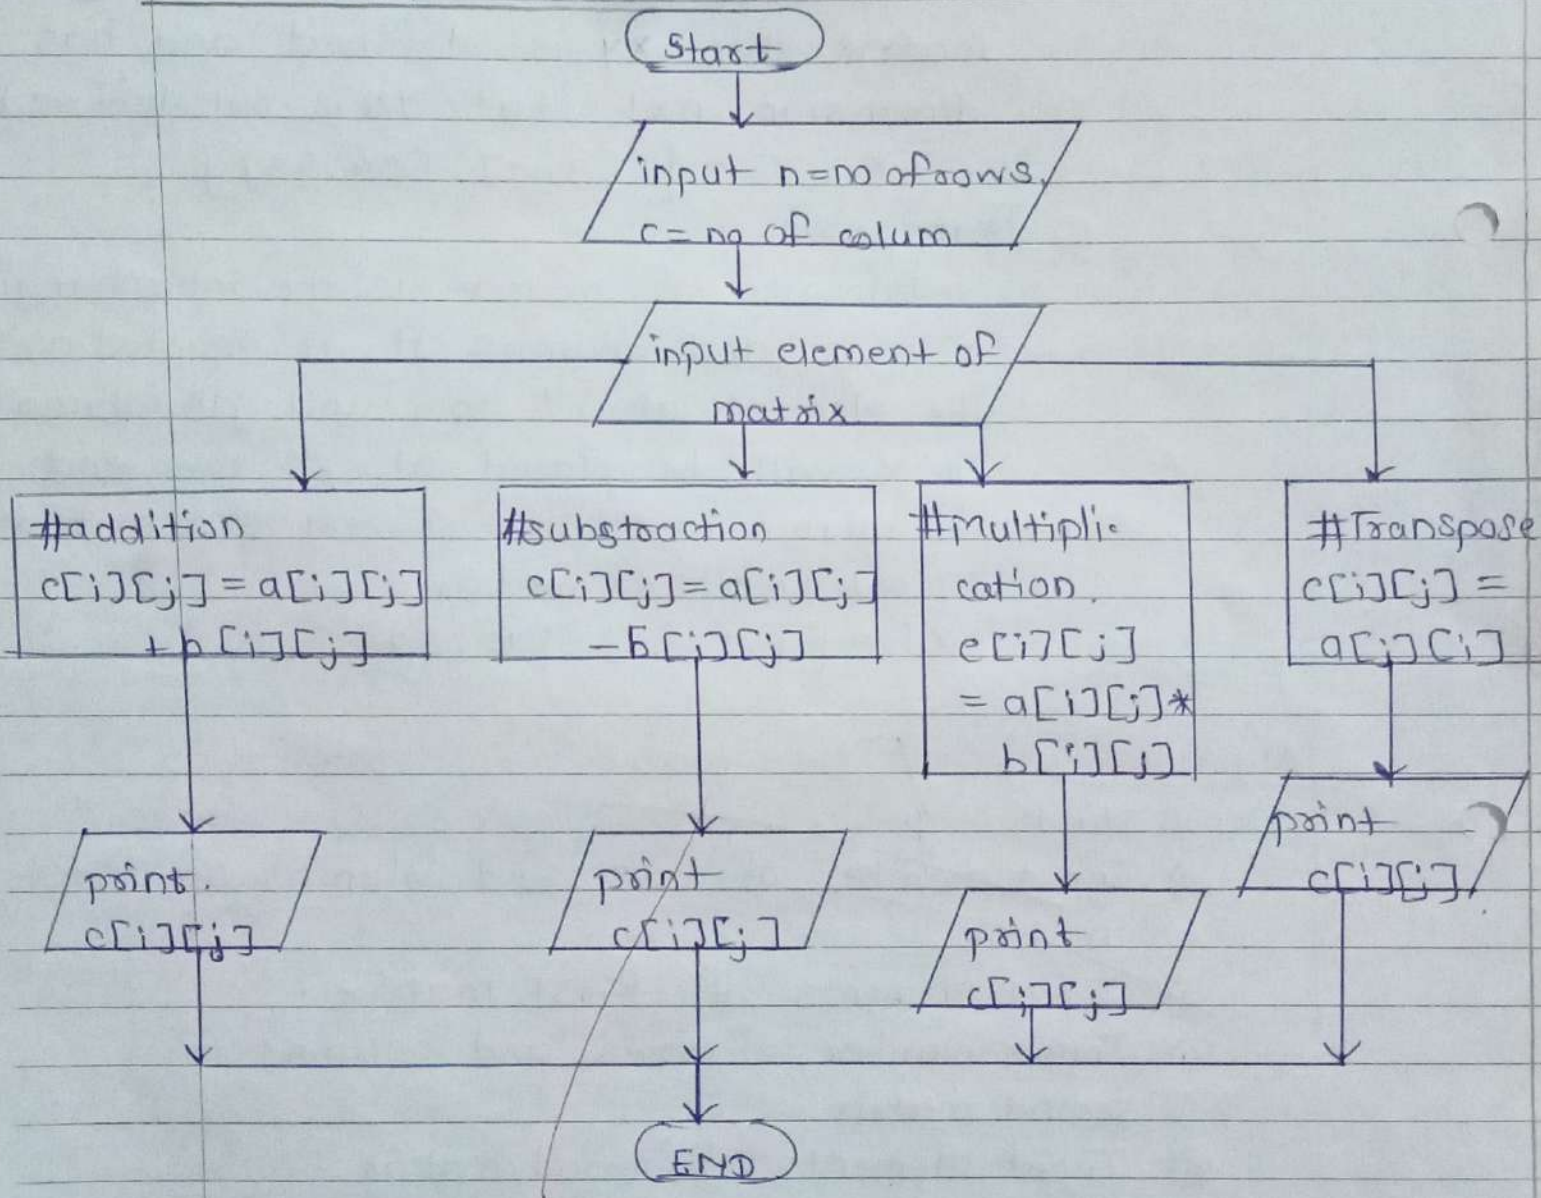 Start
input n=no of rows,
c=no of colum
input element of
matrix
#addition
c[i][j]=a[i][j]
+b[i][j]
#substraction
c[i][j]=a[i][j]
-b[i][j]
#Multipli-
cation.
e[i][j]
=a[i][j]*
b[i][j]
#Transpose
c[i][j]=
a[j][i]
print.
c[i][j]
print
c[i][j]
print
c[i][j]
print
c[i][j]
END